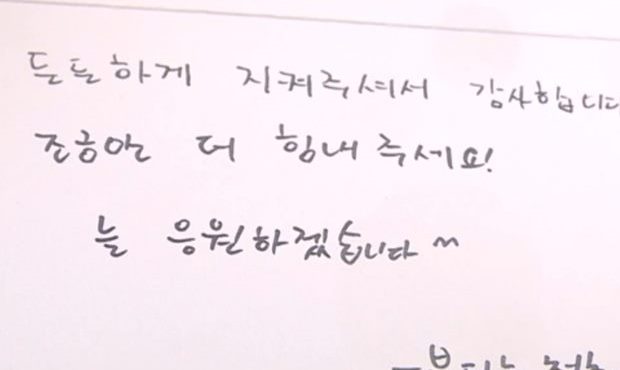 든든하게 지켜주셔서 감사합니다
조금만 더 힘내 주세요!
늘 응원하겠습니다 ~